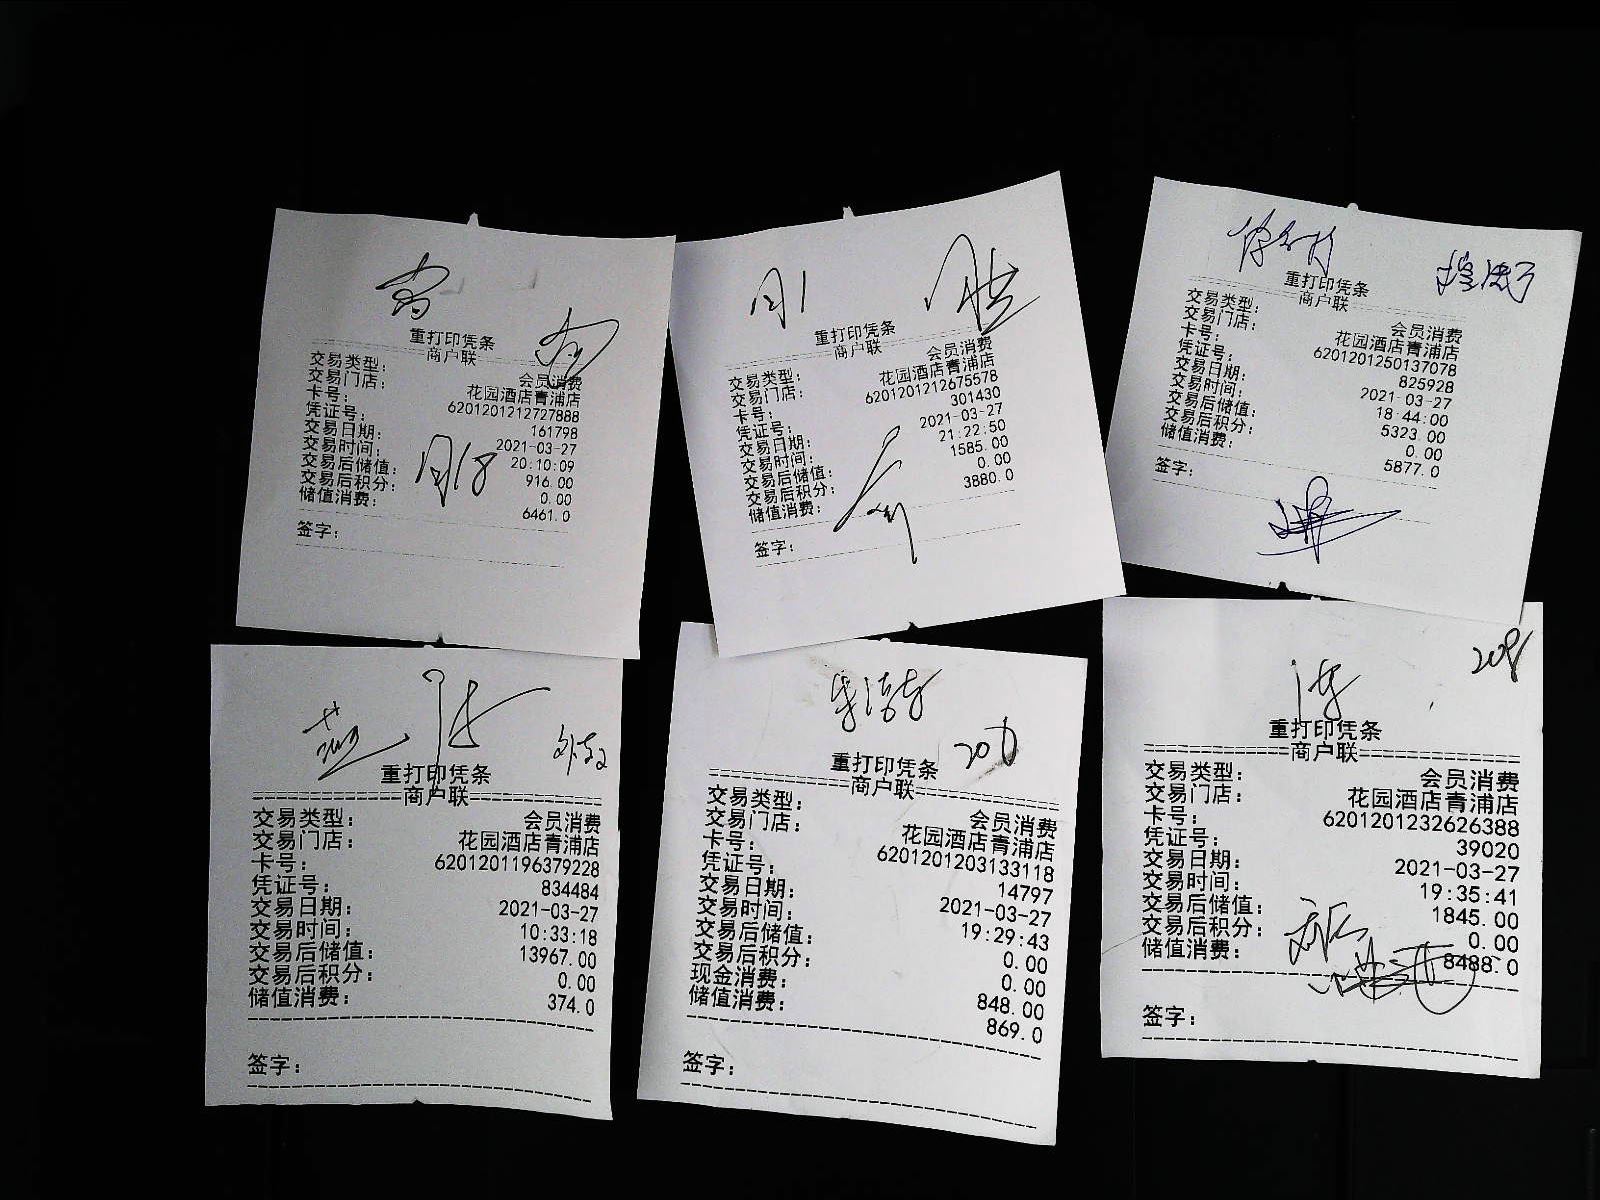 重打印凭条
商户联
交易类型: 会员消费
交易门店: 花园酒店青浦店
卡号: 6201201212727888
凭证号: 161798
交易日期: 2021-03-27
交易时间: 20:10:09
交易后储值: 916.00
交易后积分: 0.00
储值消费: 6461.0
签字:
重打印凭条
商户联
交易类型: 会员消费
交易门店: 花园酒店青浦店
卡号: 6201201212675578
凭证号: 301430
交易日期: 2021-03-27
交易时间: 21:22:50
交易后储值: 1585.00
交易后积分: 0.00
储值消费: 3880.0
签字:
重打印凭条
商户联
交易类型: 会员消费
交易门店: 花园酒店青浦店
卡号: 6201201250137078
凭证号: 825928
交易日期: 2021-03-27
交易时间: 18:44:00
交易后储值: 5323.00
交易后积分: 0.00
储值消费: 5877.0
签字:
重打印凭条
商户联
交易类型: 会员消费
交易门店: 花园酒店青浦店
卡号: 6201201196379228
凭证号: 834484
交易日期: 2021-03-27
交易时间: 10:33:18
交易后储值: 13967.00
交易后积分: 0.00
储值消费: 374.0
签字:
重打印凭条
商户联
交易类型: 会员消费
交易门店: 花园酒店青浦店
卡号: 6201201203133118
凭证号: 14797
交易日期: 2021-03-27
交易时间: 19:29:43
交易后储值: 0.00
交易后积分: 0.00
现金消费: 848.00
储值消费: 869.0
签字:
208
重打印凭条
商户联
交易类型: 会员消费
交易门店: 花园酒店青浦店
卡号: 6201201232626388
凭证号: 39020
交易日期: 2021-03-27
交易时间: 19:35:41
交易后储值: 1845.00
交易后积分: 0.00
储值消费: 8488.0
签字: